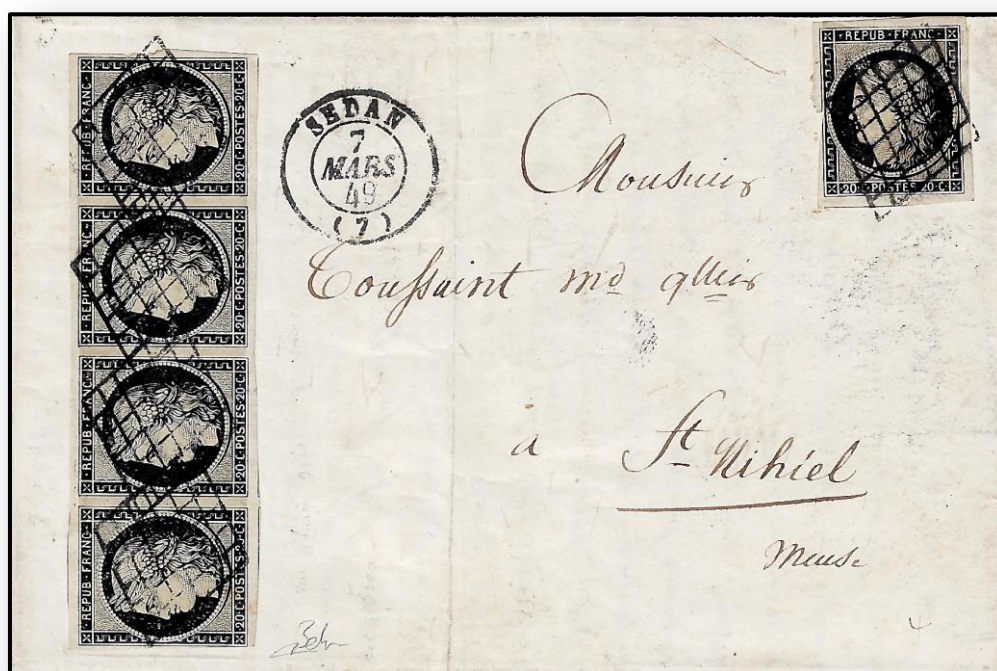 REPUB·FRANC·
20·C·POSTES·20·C·
REPUB·FRANC·
20·C·POSTES·20·C·
REPUB·FRANC·
20·C·POSTES·20·C·
REPUB·FRANC·
20·C·POSTES·20·C·
SEDAN
7
MARS
49
(7)
REPUB·FRANC·
20·C·POSTES·20·C·
Monsieur
Toussaint md qllier
à St Mihiel
Meuse